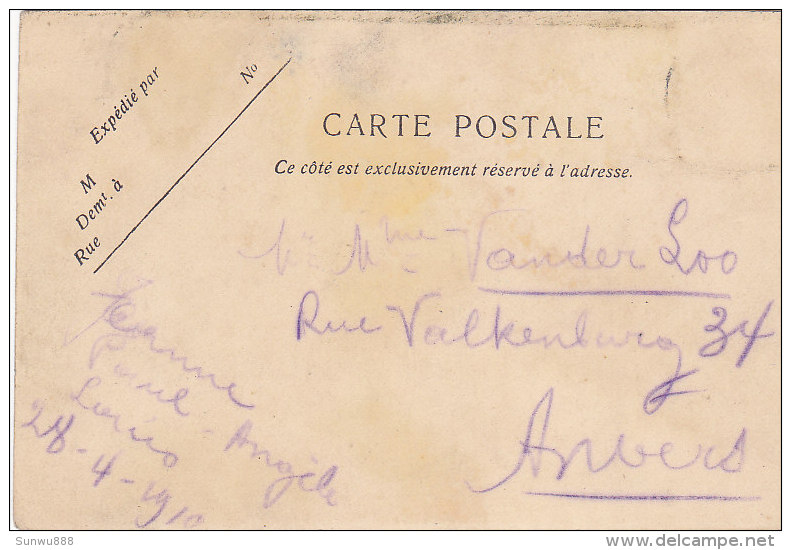 Expédié par
No
M
Demt. à
Rue
CARTE POSTALE
Ce côté est exclusivement réservé à l'adresse.
Mr Mme Vander Loo
Rue Valkenburg 34
Anvers
Jeanne
Paul - Angèle
Louis
28-4-1910
Sunwu888
delcampe.net